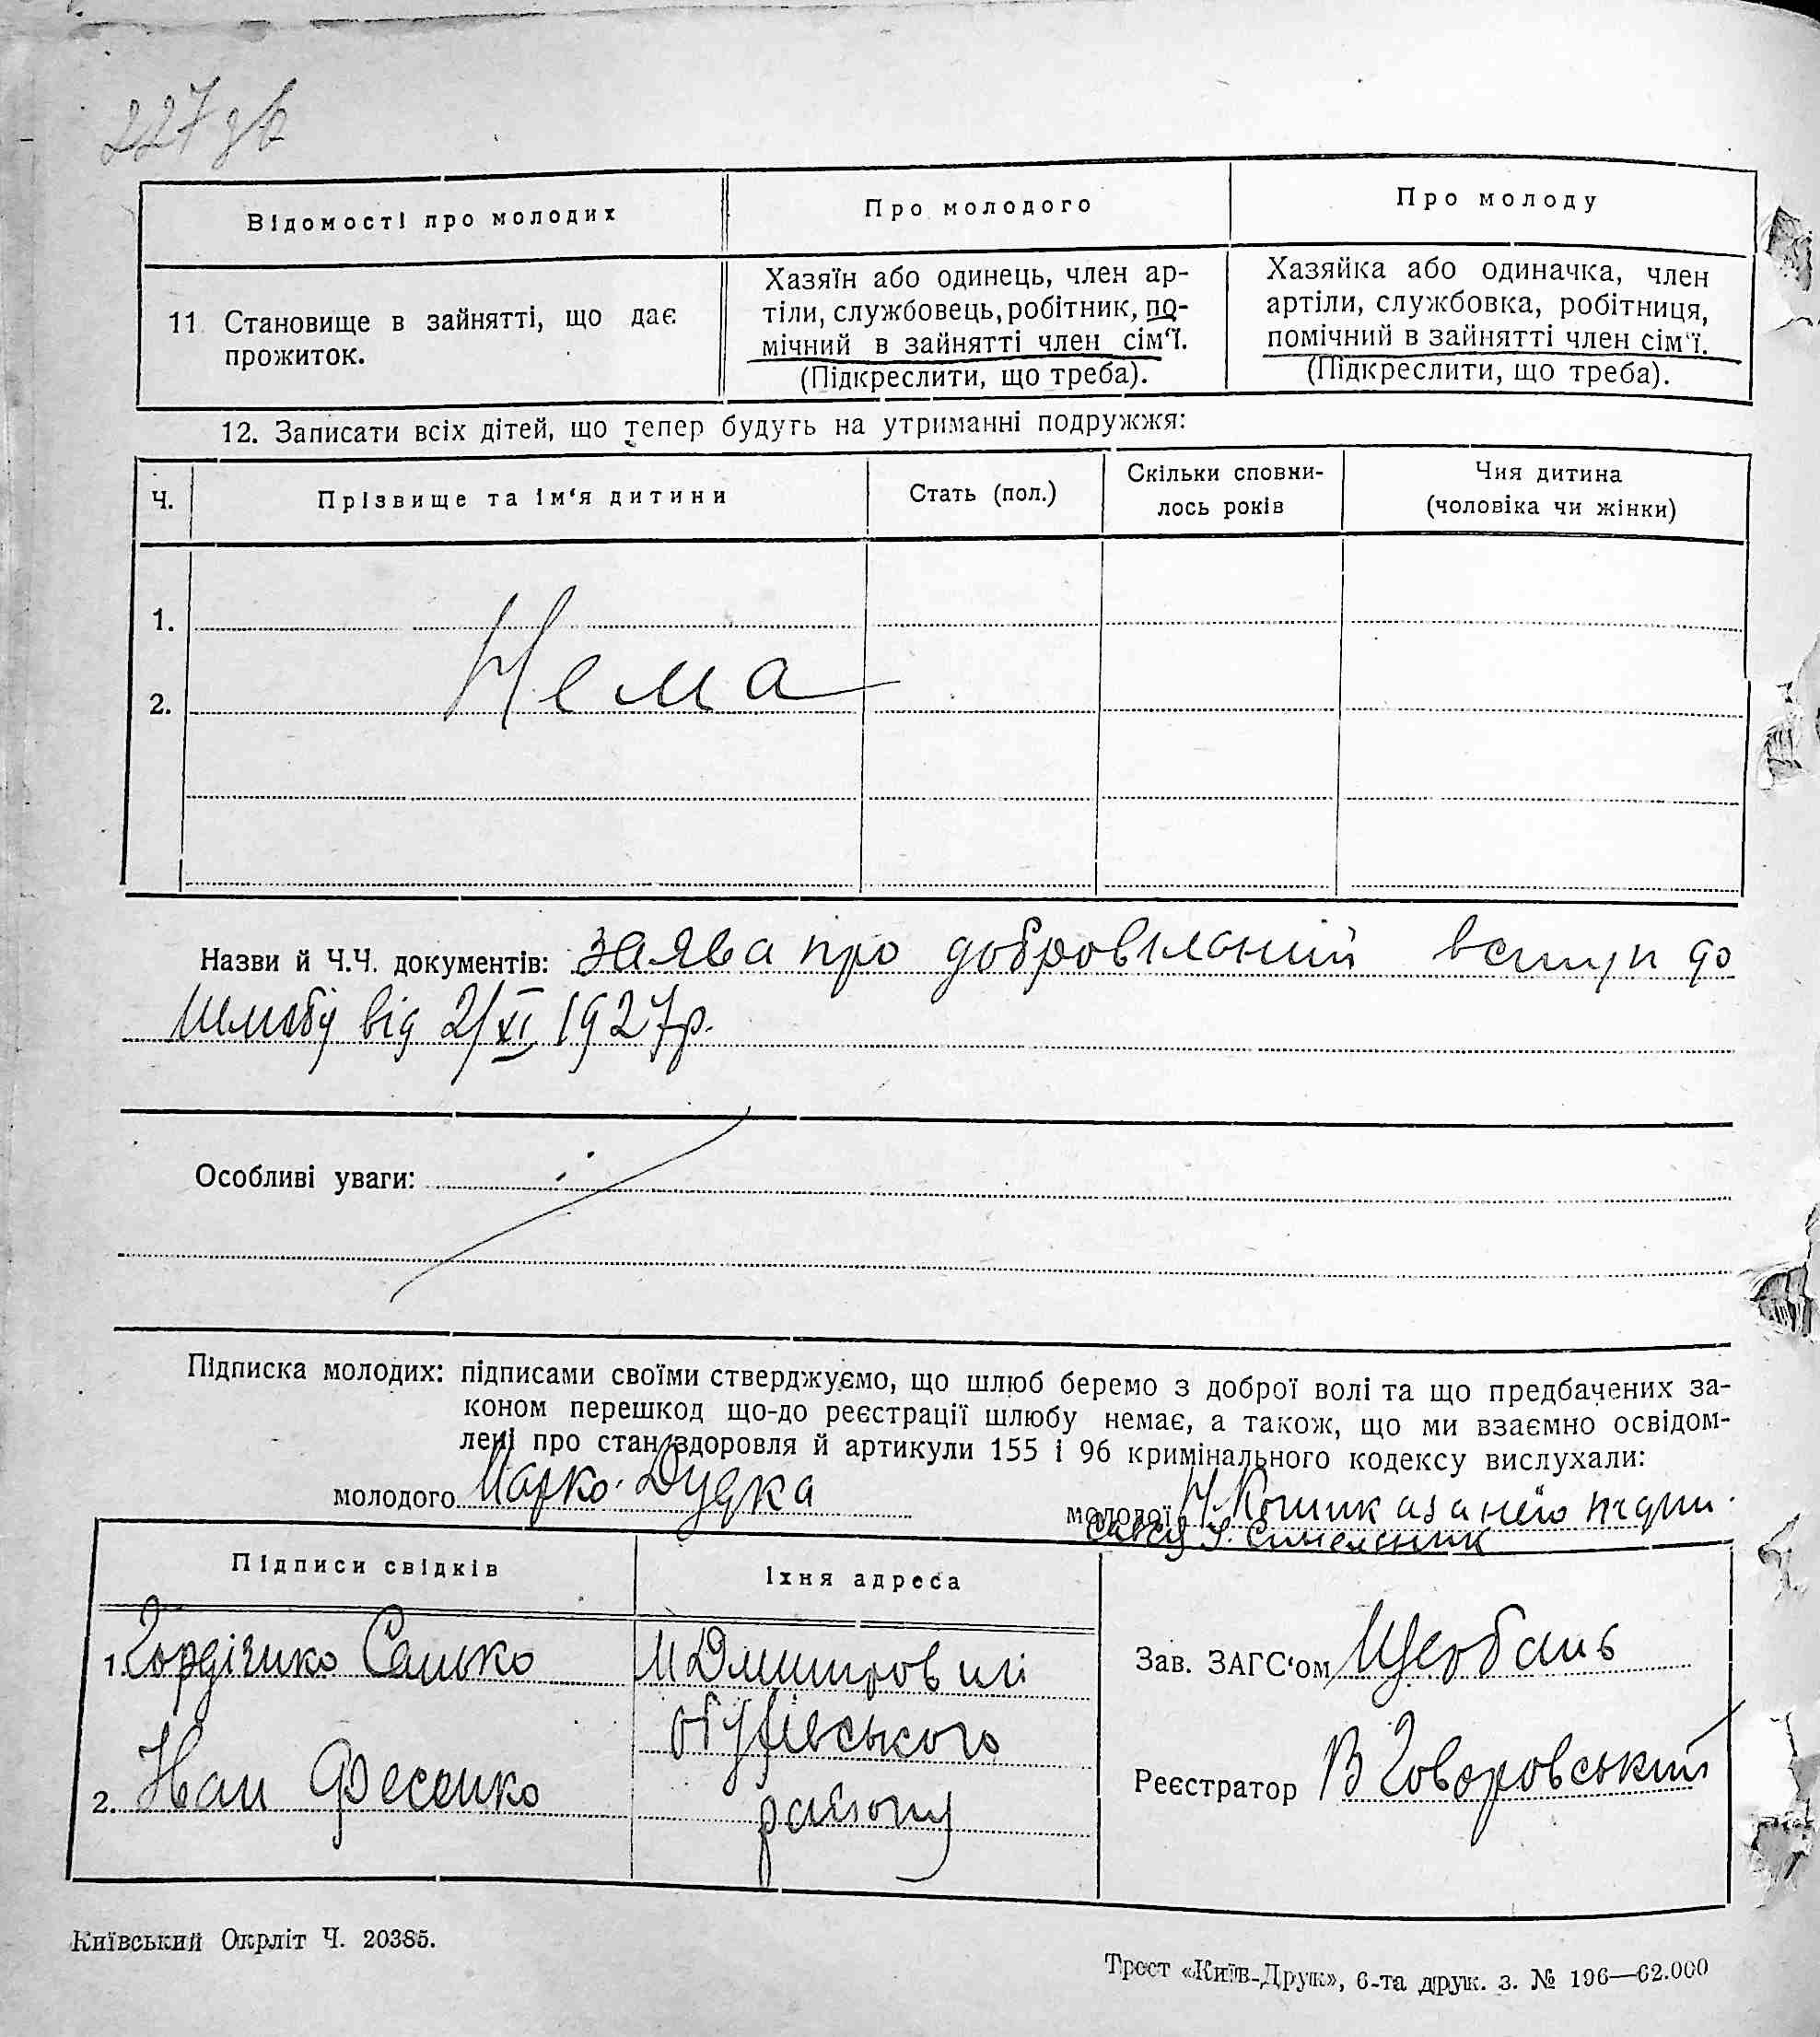 227 зв
Відомості про молодих
Про молодого
Про молоду
11 Становище в зайнятті, що дає
прожиток.
Хазяїн або одинець, член ар-
тіли, службовець, робітник, по-
мічний в зайнятті член сім'ї.
(Підкреслити, що треба).
Хазяйка або одиначка, член
артіли, службовка, робітниця,
помічний в зайнятті член сім'ї.
(Підкреслити, що треба).
12. Записати всіх дітей, що тепер будуть на утриманні подружжя:
Ч.
Прізвище та ім'я дитини
Стать (пол.)
Скільки сповни-
лось років
Чия дитина
(чоловіка чи жінки)
1.
Нема
2.
Назви й Ч.Ч. документів: Заява про добровільний вступ до
шлюбу від 2/XI 1927р.
Особливі уваги:
Підписка молодих: підписами своїми стверджуємо, що шлюб беремо з доброї волі та що предбачених за-
коном перешкод що-до реєстрації шлюбу немає, а також, що ми взаємно освідом-
лені про стан здоровля й артикули 155 і 96 кримінального кодексу вислухали:
молодого Марко Дудка
молодої Н. Кошик а за неї підпи
Підписи свідків
Їхня адреса
1. Гордієнко Сашко
М Дмитровки
обухівського
2. Іван Фесенко
району
Зав. ЗАГС'ом Щербань
Реєстратор В Говоровський
Київський Окрліт Ч. 20385.
Трест «Київ-Друк», 6-та друк. з. № 196—62.000